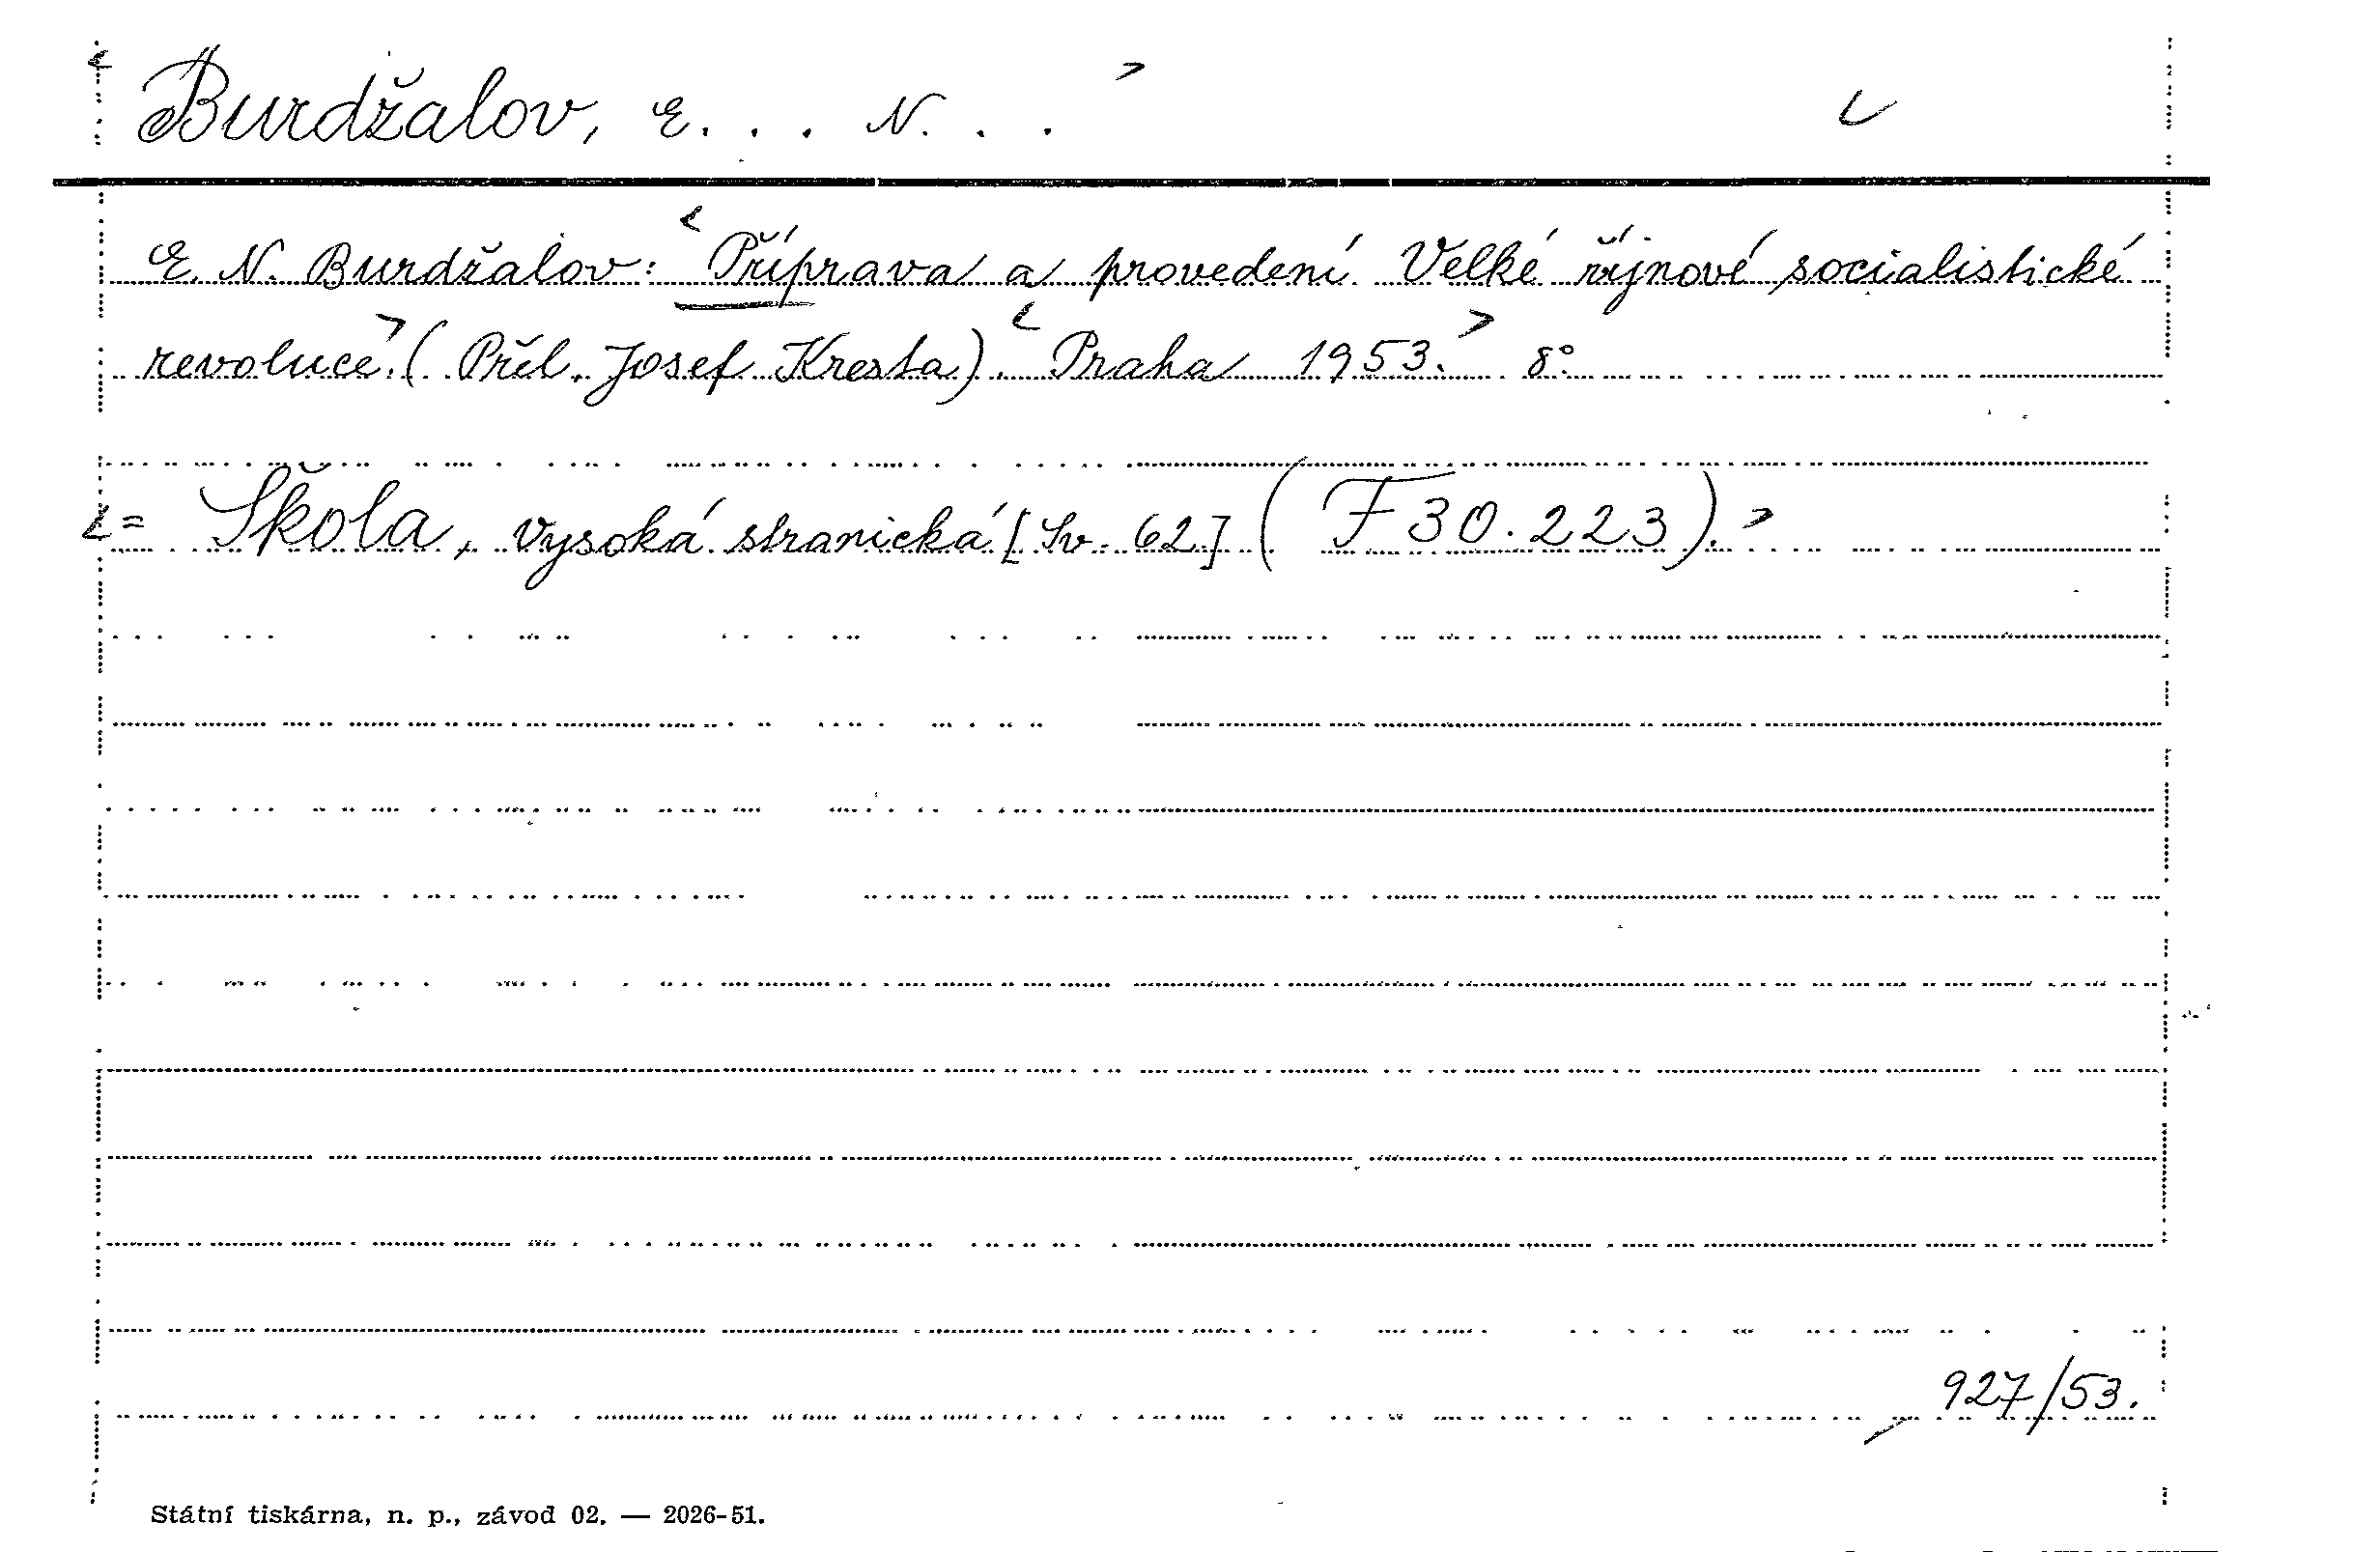 Burdžalov, E. . . N. . .
E. N. Burdžalov: Příprava a provedení Velké říjnové socialistické
revoluce. (Přel. Josef Kresta). Praha 1953. 8°.
= Škola, vysoká stranická [Sv. 62] (F 30.223).
927/53.
Státní tiskárna, n. p., závod 02. — 2026-51.